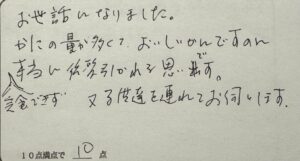 お世話になりました。
かにの量が多くて、おいしかんですのに
本当に後髪引かれる思いです。
完食できず 又子供達を連れてお伺いします。
10点満点で 10 点